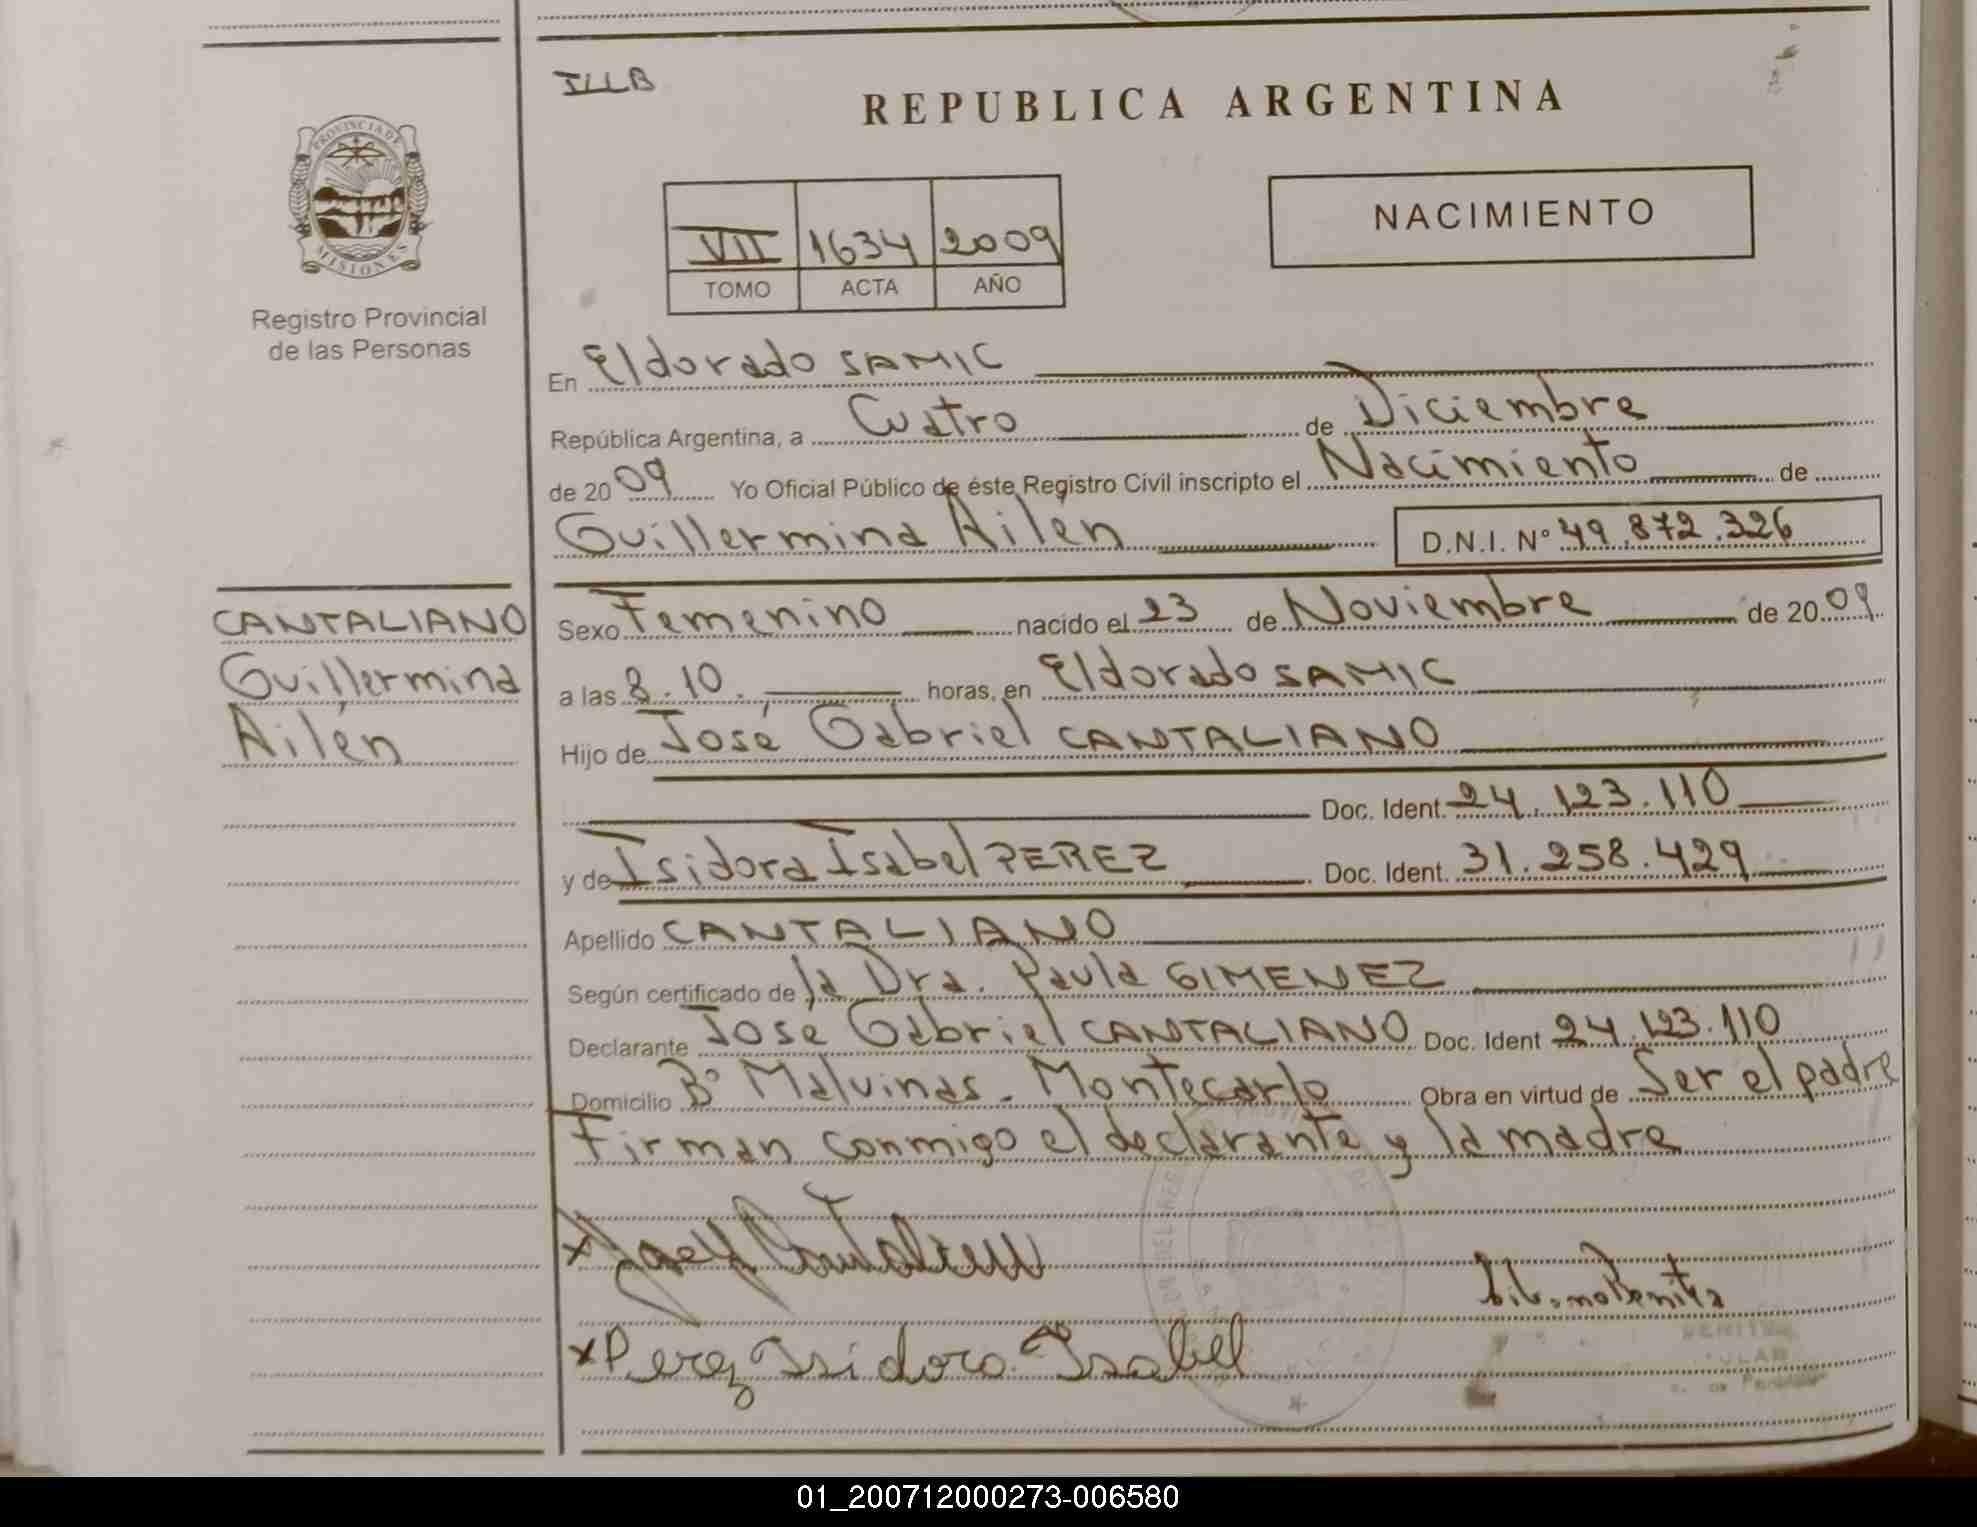 ILLB
REPUBLICA ARGENTINA
PROVINCIA DE
MISIONES
Registro Provincial
de las Personas
VII 1634 2009
TOMO ACTA AÑO
NACIMIENTO
En Eldorado SAMIC
República Argentina, a Cuatro de Diciembre
de 2009 Yo Oficial Público de éste Registro Civil inscripto el Nacimiento de
Guillermina Ailén D.N.I. Nº 49.872.326
CANTALIANO
Guillermina
Ailén
Sexo Femenino nacido el 23 de Noviembre de 2009
a las 8.10. horas, en Eldorado SAMIC
Hijo de José Gabriel CANTALIANO
Doc. Ident. 24.123.110
y de Isidora Isabel PEREZ Doc. Ident. 31.258.429
Apellido CANTALIANO
Según certificado de la Dra. Paula GIMENEZ
Declarante José Gabriel CANTALIANO Doc. Ident 24.123.110
Domicilio Bº Malvinas. Montecarlo Obra en virtud de Ser el padre
Firman conmigo el declarante y la madre
x
x Perez Isidora Isabel
01_200712000273-006580